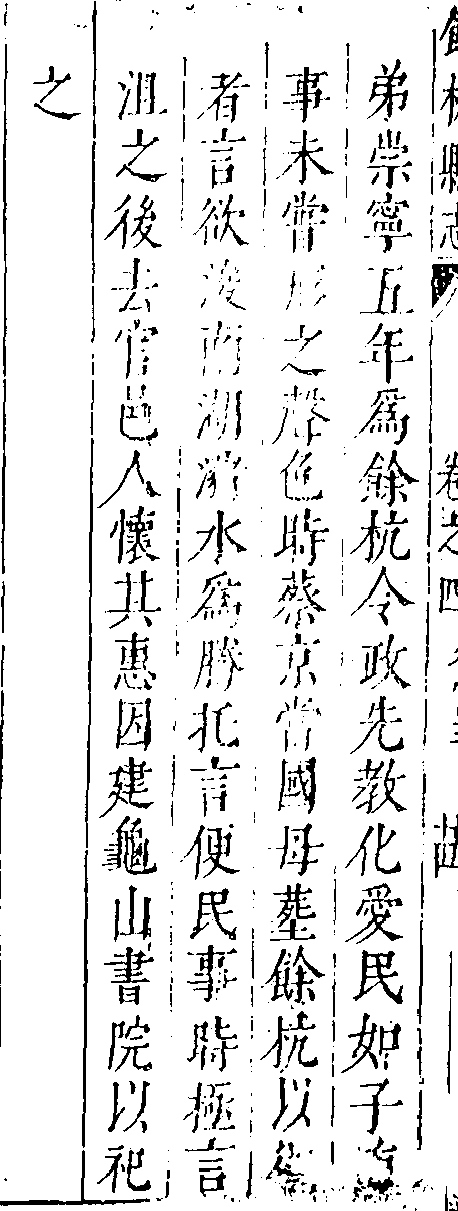 餘杭縣志 卷之四
弟崇寧五年爲餘杭令政先教化愛民如子
事未嘗形之聲色時蔡京當國母塟餘杭以
者言欲浚南湖瀦水爲勝托言便民事時極言
沮之後去官邑人懷其惠因建龜山書院以祀
之